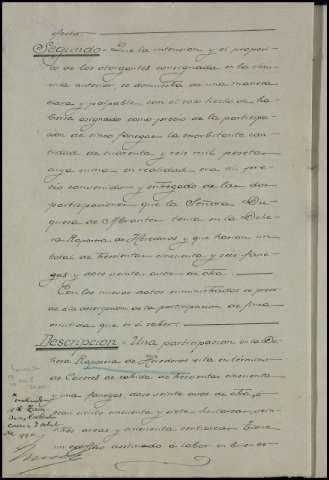 efecto.
Segundo = Que la intencion y el proposi-
to de los otorgantes consignada en la clau-
sula anterior se demuestra de una manera
clara y palpable, con el solo hecho de ha-
berse asignado como precio de la participa-
cion de cinco fanegas la exorbitante can-
tidad de cuarenta y seis mil pesetas
cuya suma en realidad era el pre-
cio convenido y entregado de las dos
participaciones que la Señora Du-
quesa de Abrantes tenia en la Dehe-
sa Raposina de Herederos y que hacian un
total de trescientas cincuenta y seis fane-
gas y doce veinte avos de otra.
Con los nuevos datos suministrados se proce-
de a la descripcion de la participacion de finca
omitida que es a saber:
Descripcion = Una participacion en la De-
hesa Raposina de Herederos sita en termino
de Caceres de cabida de trescientas cincuenta
y una fanegas doce veinte avos de otra,
cincuenta y siete hectareas, vein-
tres areas y cincuenta centiareas. Tiene
destinado a labor en